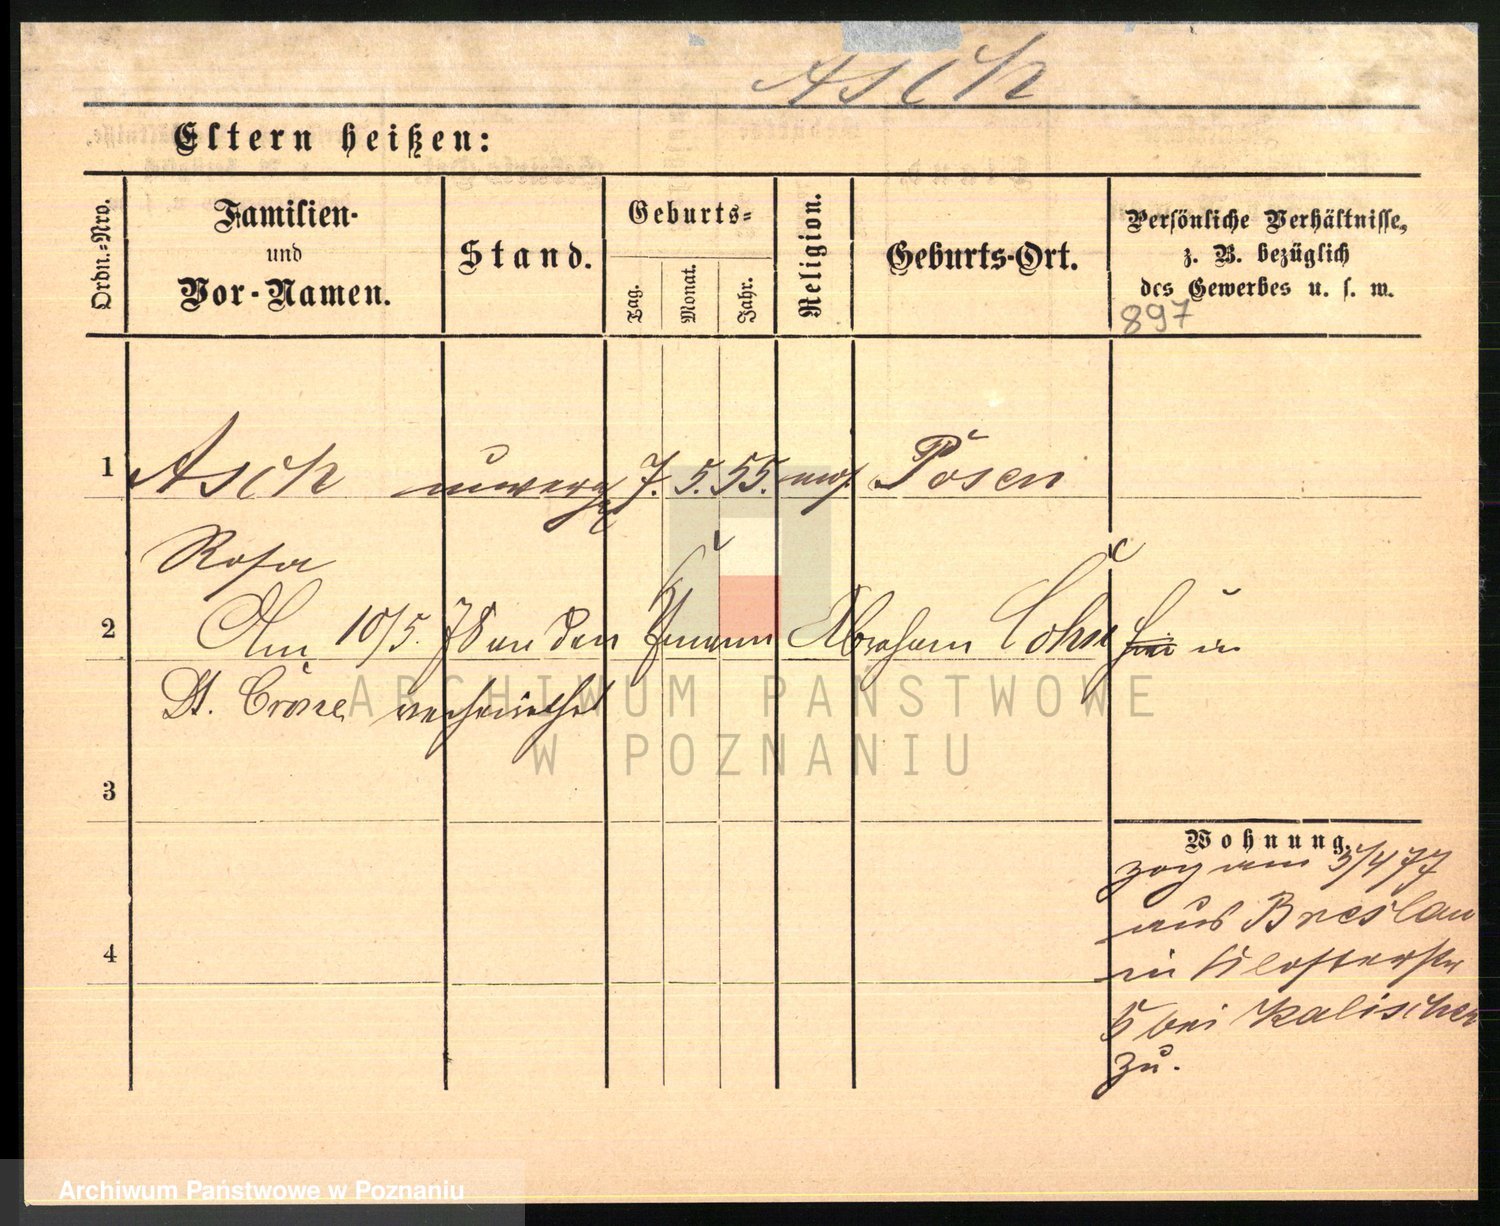 Asch
Eltern heißen:
Ordn.-Nro.
Familien-
und
Vor-Namen.
Stand.
Geburts-
Tag.
Monat.
Jahr.
Religion.
Geburts-Ort.
Persönliche Verhältnisse,
z. B. bezüglich
des Gewerbes u. s. w.
897
1
Asch unverh 7. 5. 55. mos. Posen
Rosa
2
Am 10/5. 78 an den Kfmann Abraham Cohn in
Dt. Crone verheirathet
3
ARCHIWUM PAŃSTWOWE
W POZNANIU
Wohnung.
zog am 3/4 77
aus Breslau
in Klosterstr
5 bei Kalischer
zu.
4
Archiwum Państwowe w Poznaniu